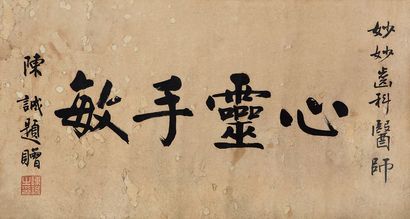 妙妙齒科醫師
心靈手敏
陳誠題贈